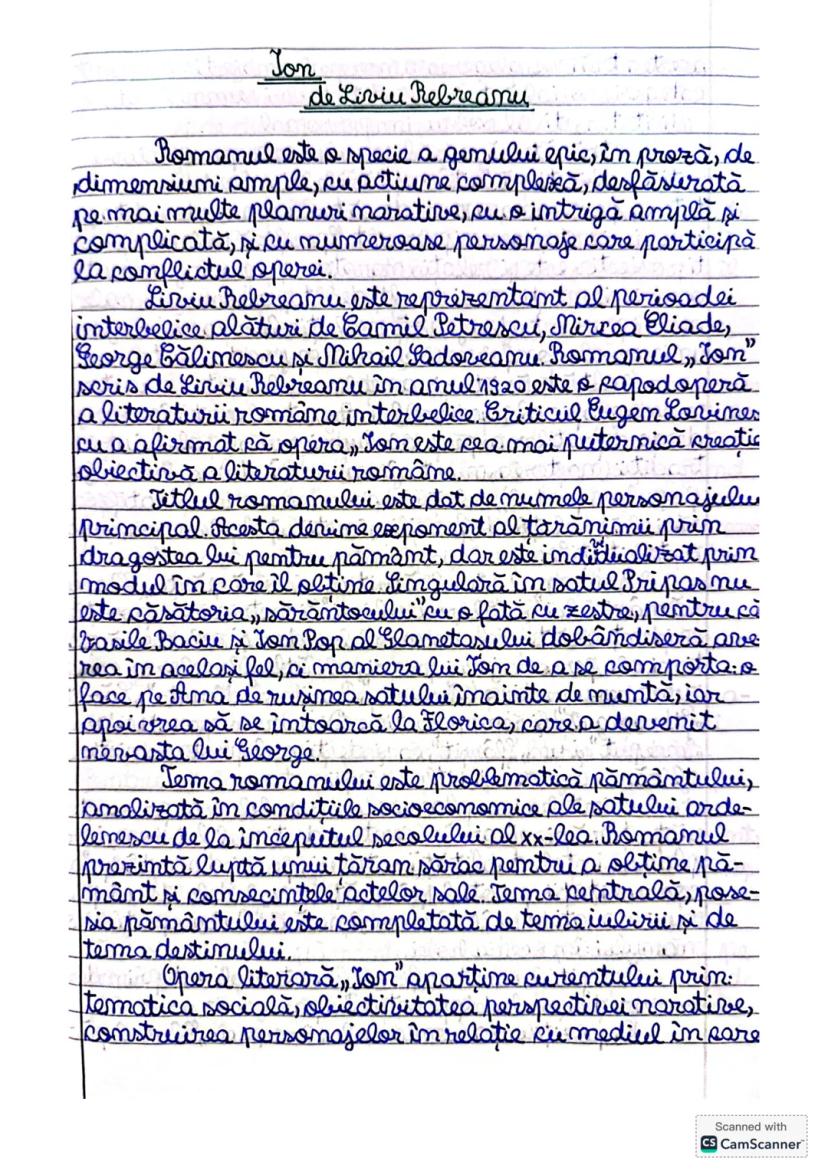 Ion
de Liviu Rebreanu
Romanul este o specie a genului epic, în proză, de
dimensiuni ample, cu acțiune complexă, desfășurată
pe mai multe planuri narative, cu o intrigă amplă și
complicată, și cu numeroase personaje care participă
la conflictul operei.
Liviu Rebreanu este reprezentant al perioadei
interbelice alături de Camil Petrescu, Mircea Eliade,
George Călinescu și Mihail Sadoveanu. Romanul „Ion”
scris de Liviu Rebreanu în anul 1920 este o capodoperă
a literaturii române interbelice. Criticul Eugen Lovines
cu a afirmat că opera „Ion este cea mai puternică creație
obiectivă a literaturii române.
Titlul romanului este dat de numele personajului
principal. Acesta devine exponent al țărănimii prin
dragostea lui pentru pământ, dar este individualizat prin
modul în care îl obține. Singulară în satul Pripas nu
este căsătoria „sărăntocului” cu o fată cu zestre, pentru că
Vasile Baciu și Ion Pop al Glanetașului dobândiseră ave
rea în același fel, ci maniera lui Ion de a se comporta: o
face pe Ana de rușinea satului înainte de nuntă, iar
apoi vrea să se întoarcă la Florica, care a devenit
nevasta lui George.
Tema romanului este problematică pământului,
analizată în condițiile socioeconomice ale satului arde-
lenescu de la începutul secolului al xx-lea. Romanul
prezintă luptă unui țăran sărac pentru a obține pă-
mânt și consecințele actelor sale. Tema centrală, pose-
sia pământului este completată de tema iubirii și de
tema destinului.
Opera literară „Ion” aparține curentului prin:
tematica socială, obiectivitatea perspectivei narative,
construirea personajelor în relație cu mediul în care
Scanned with
CS CamScanner